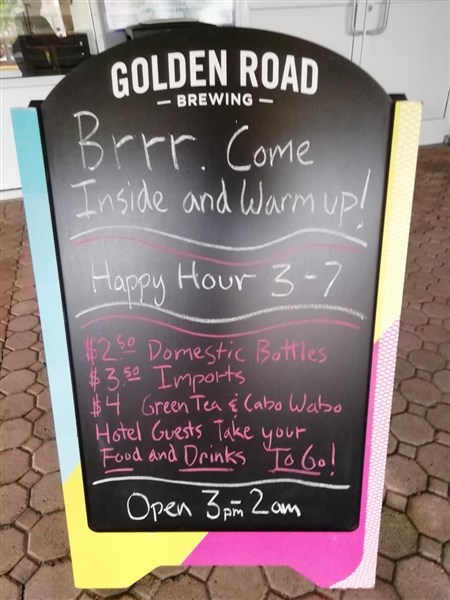 GOLDEN ROAD
— BREWING —
Brrr. Come
Inside and Warm up!
Happy Hour 3-7
$2.50 Domestic Bottles
$3.50 Imports
$4 Green Tea & Cabo Wabo
Hotel Guests Take your
Food and Drinks To Go!
Open 3pm - 2am